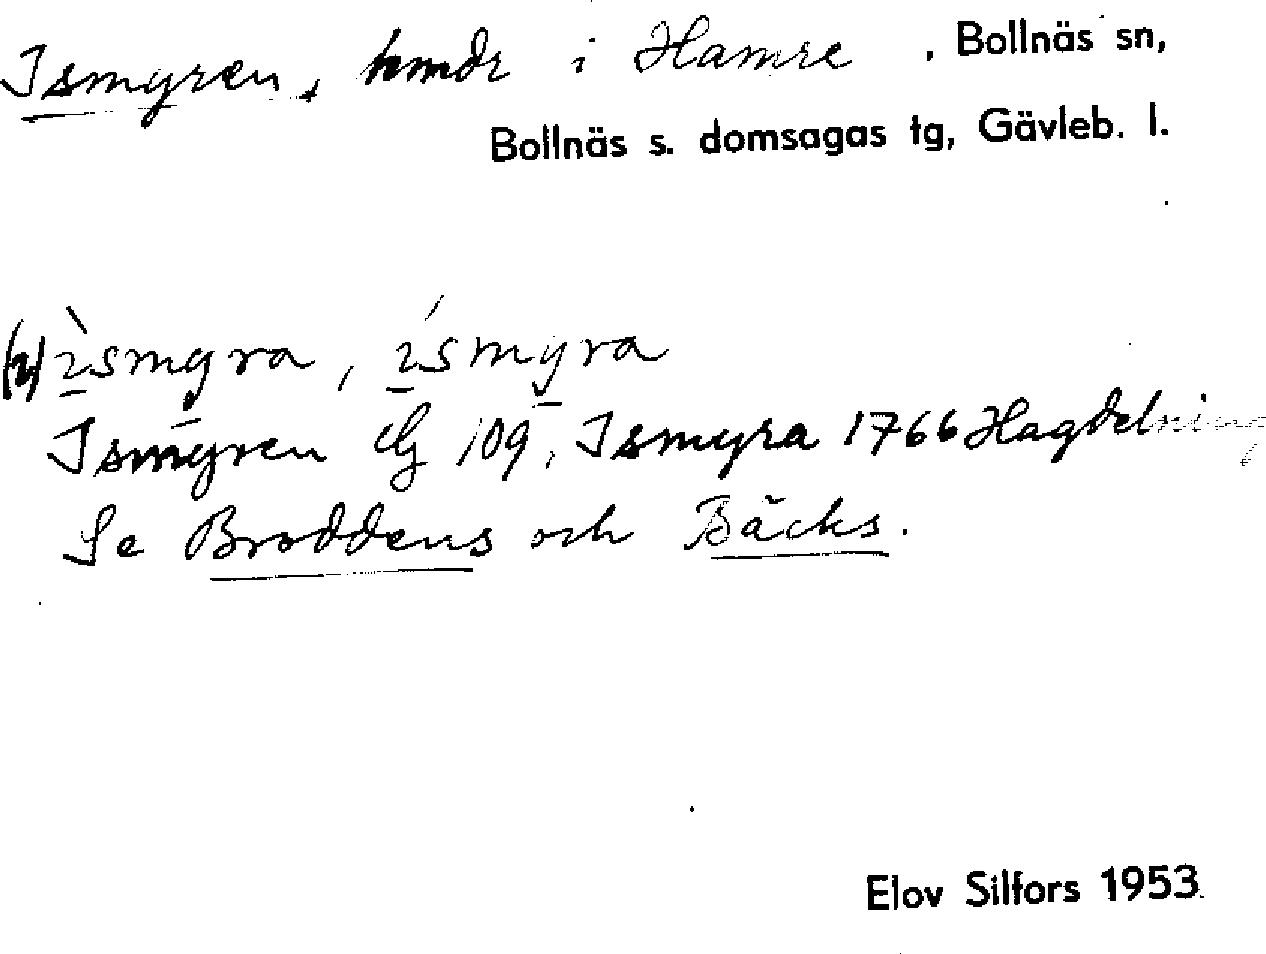 Ismyren, hmdr i Hamre, Bollnäs sn,
Bollnäs s. domsagas tg, Gävleb. l.
ìsmyra, ísmyra
Ismyren EG 109, Ismyra 1766 Hagdelning
Se Broddens och Bäcks.
Elov Silfors 1953